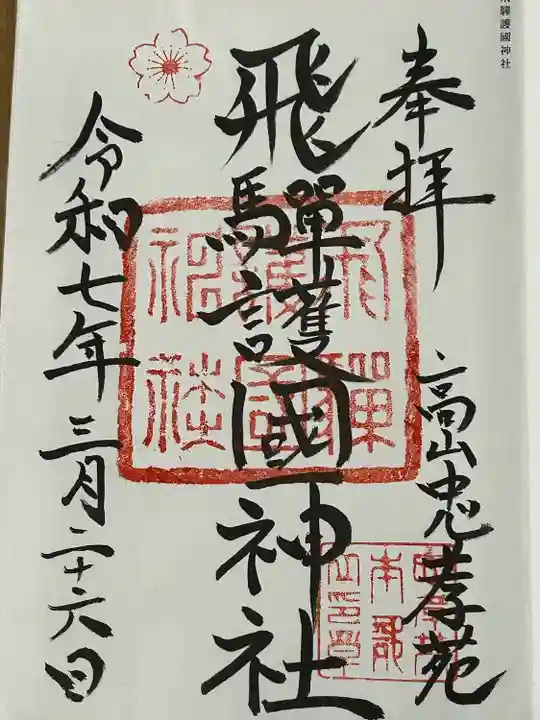 飛騨護國神社
奉拝
高山忠孝苑
飛驒護國神社
令和七年三月二十六日
飛驒護國神社